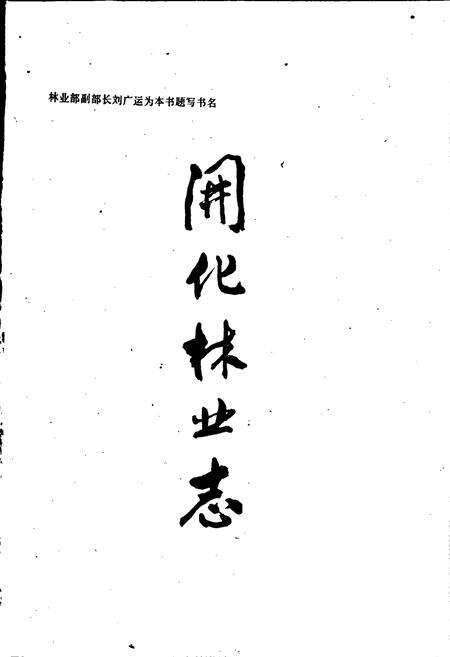 林业部副部长刘广运为本书题写书名
開化林业志